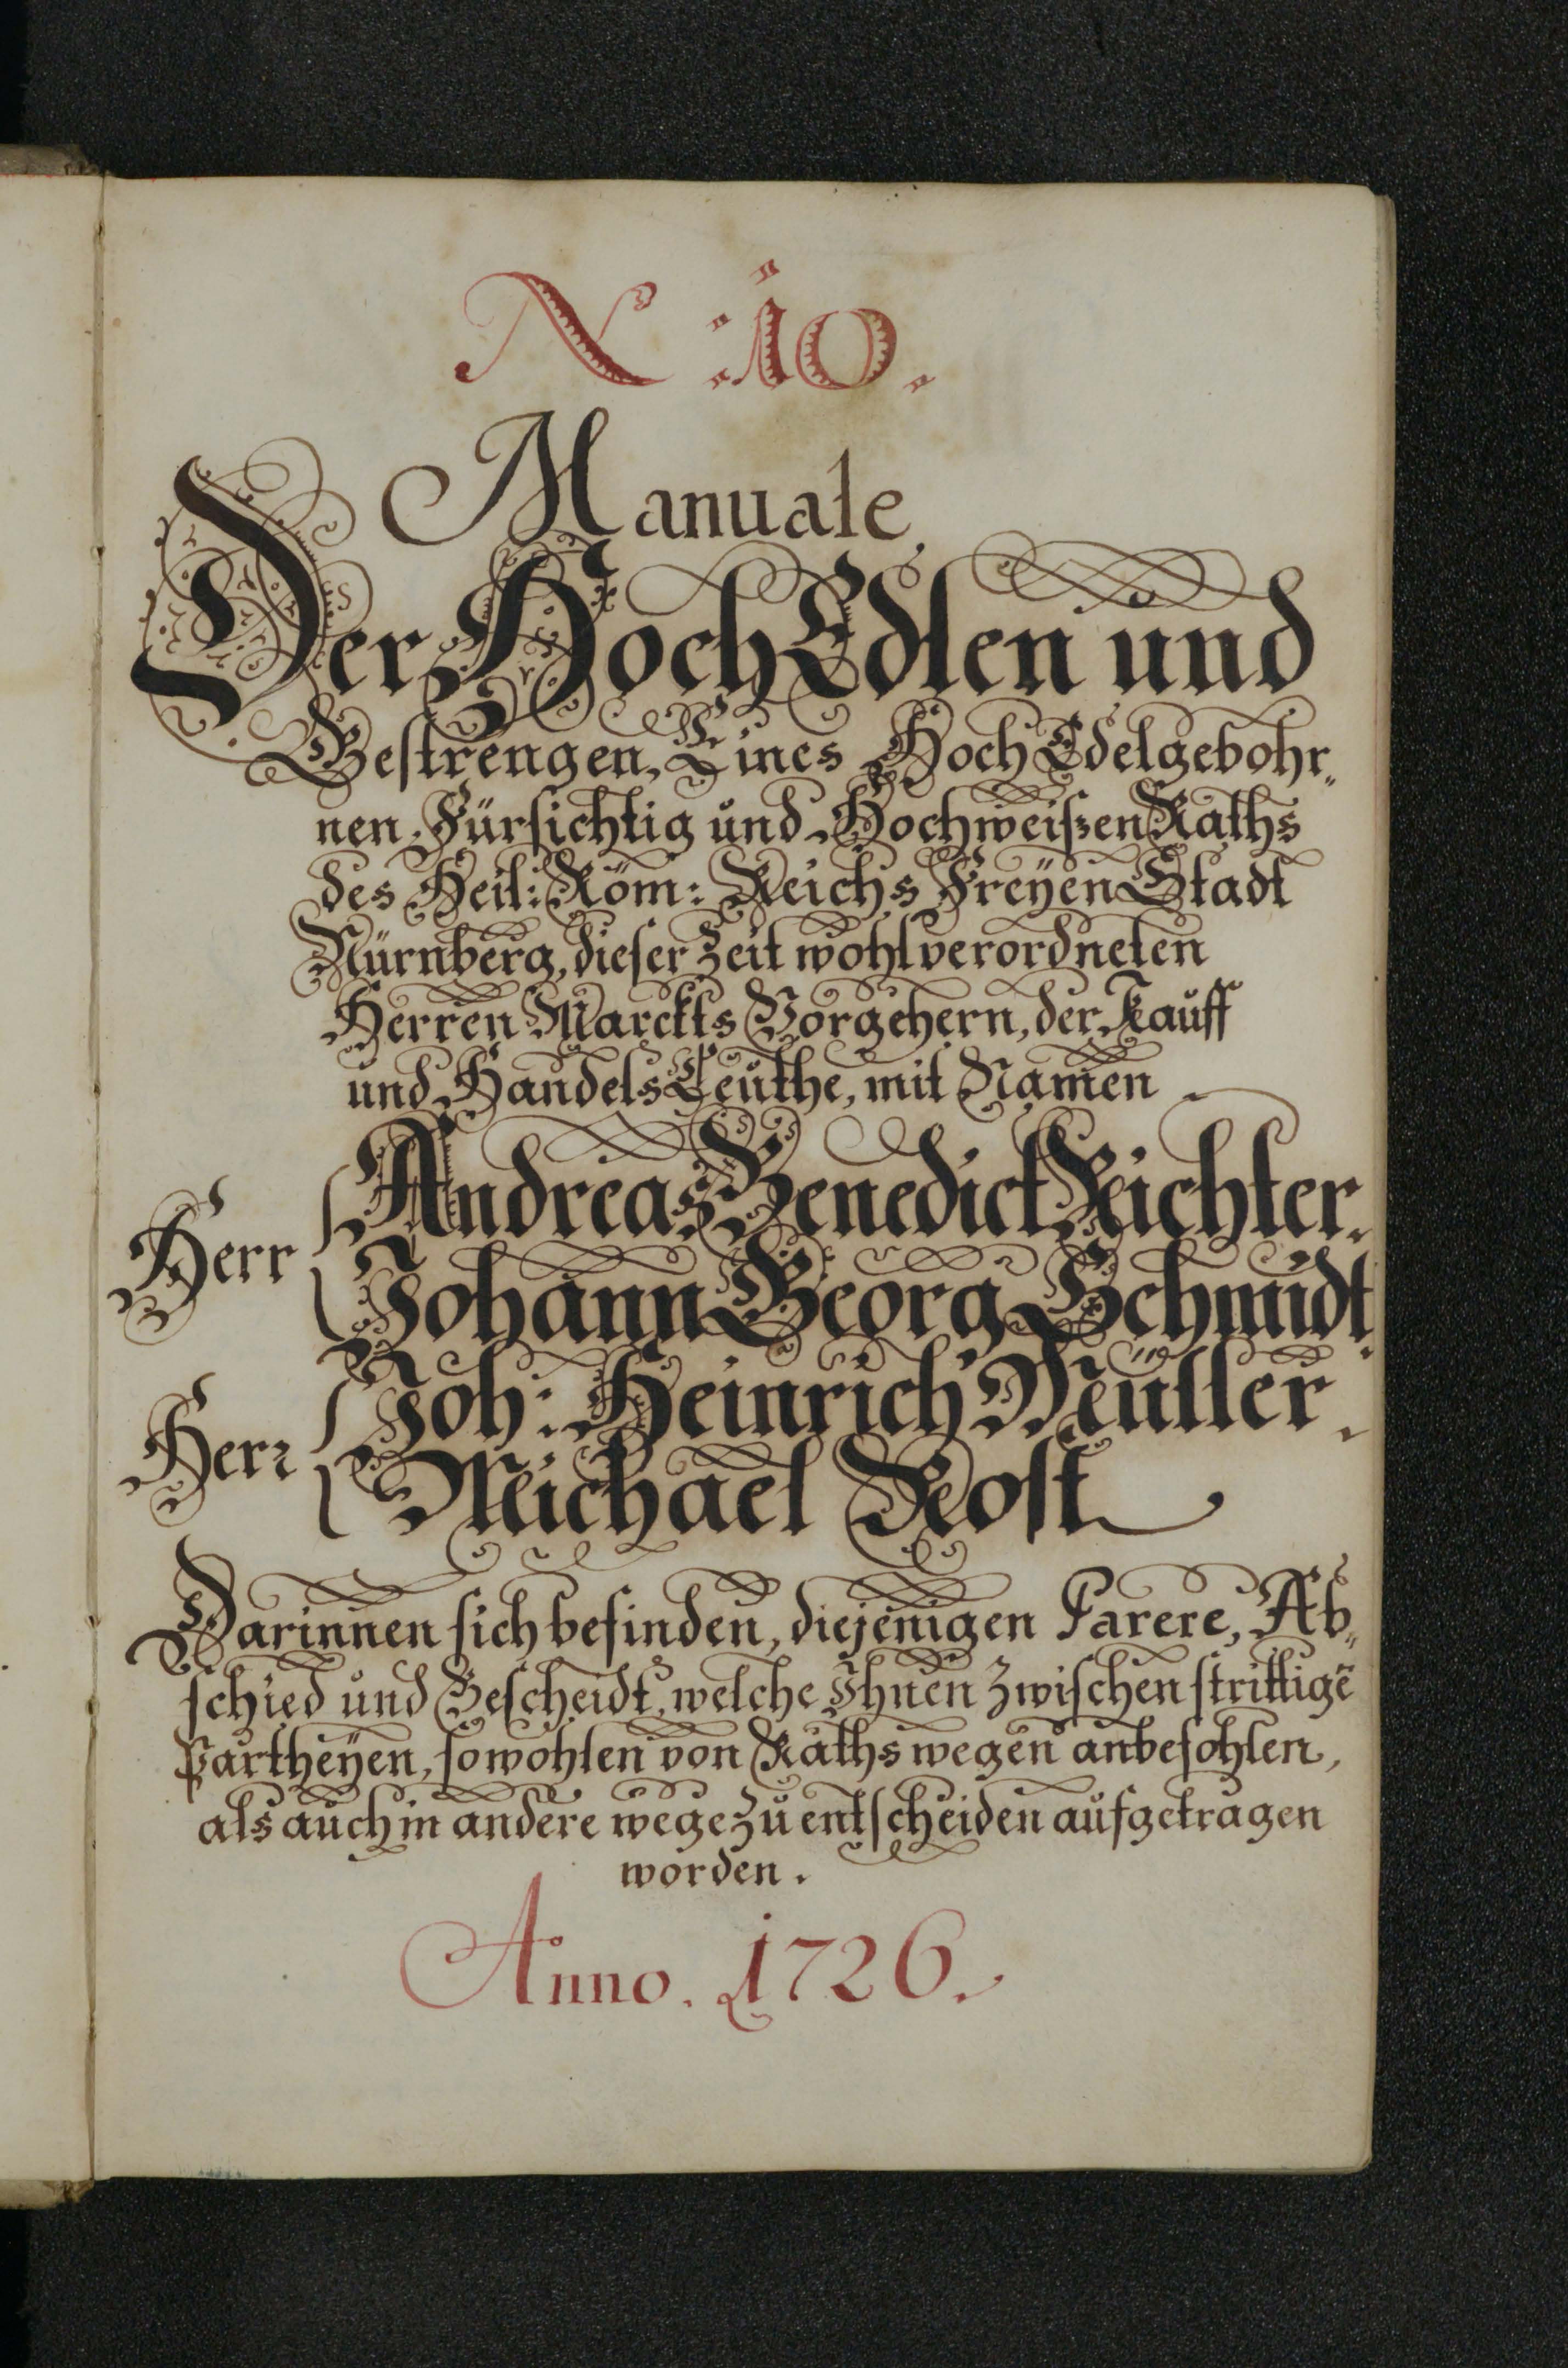 N: 10.
Manuale
Der HochEdlen und
Gestrengen, Eines HochEdelgebohr„
nen, Fürsichtig und Hochweißen Raths
des Heil: Röm: Reichs Freyen Stadt
Nürnberg, dieser Zeit wohlverordneten
Herren Marckts Vorgehern, der Kauff
und Handels Leuthe, mit Namen
Andreas Benedict Richter.
Herr
Johann Georg Schmidt.
Joh: Heinrich Müller.
Herr
Michael Rost
Darinnen sich befinden, diejenigen Parere, Ab„
schied und Bescheidt, welche Ihnen zwischen strittigē
Partheyen, sowohlen von Raths wegen anbefohlen,
als auch in andere wege zu entscheiden aufgetragen
worden.
Anno. 1726.